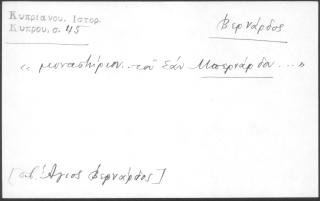 Κυπριανού. Ιστορ.
Κύπρου, σ. 45
Βερνάρδος
« μοναστήριον.. τοῦ Σὰν Μπερνάρδου .... »
[ἐκ. Ἅγιος Βερνάρδος]